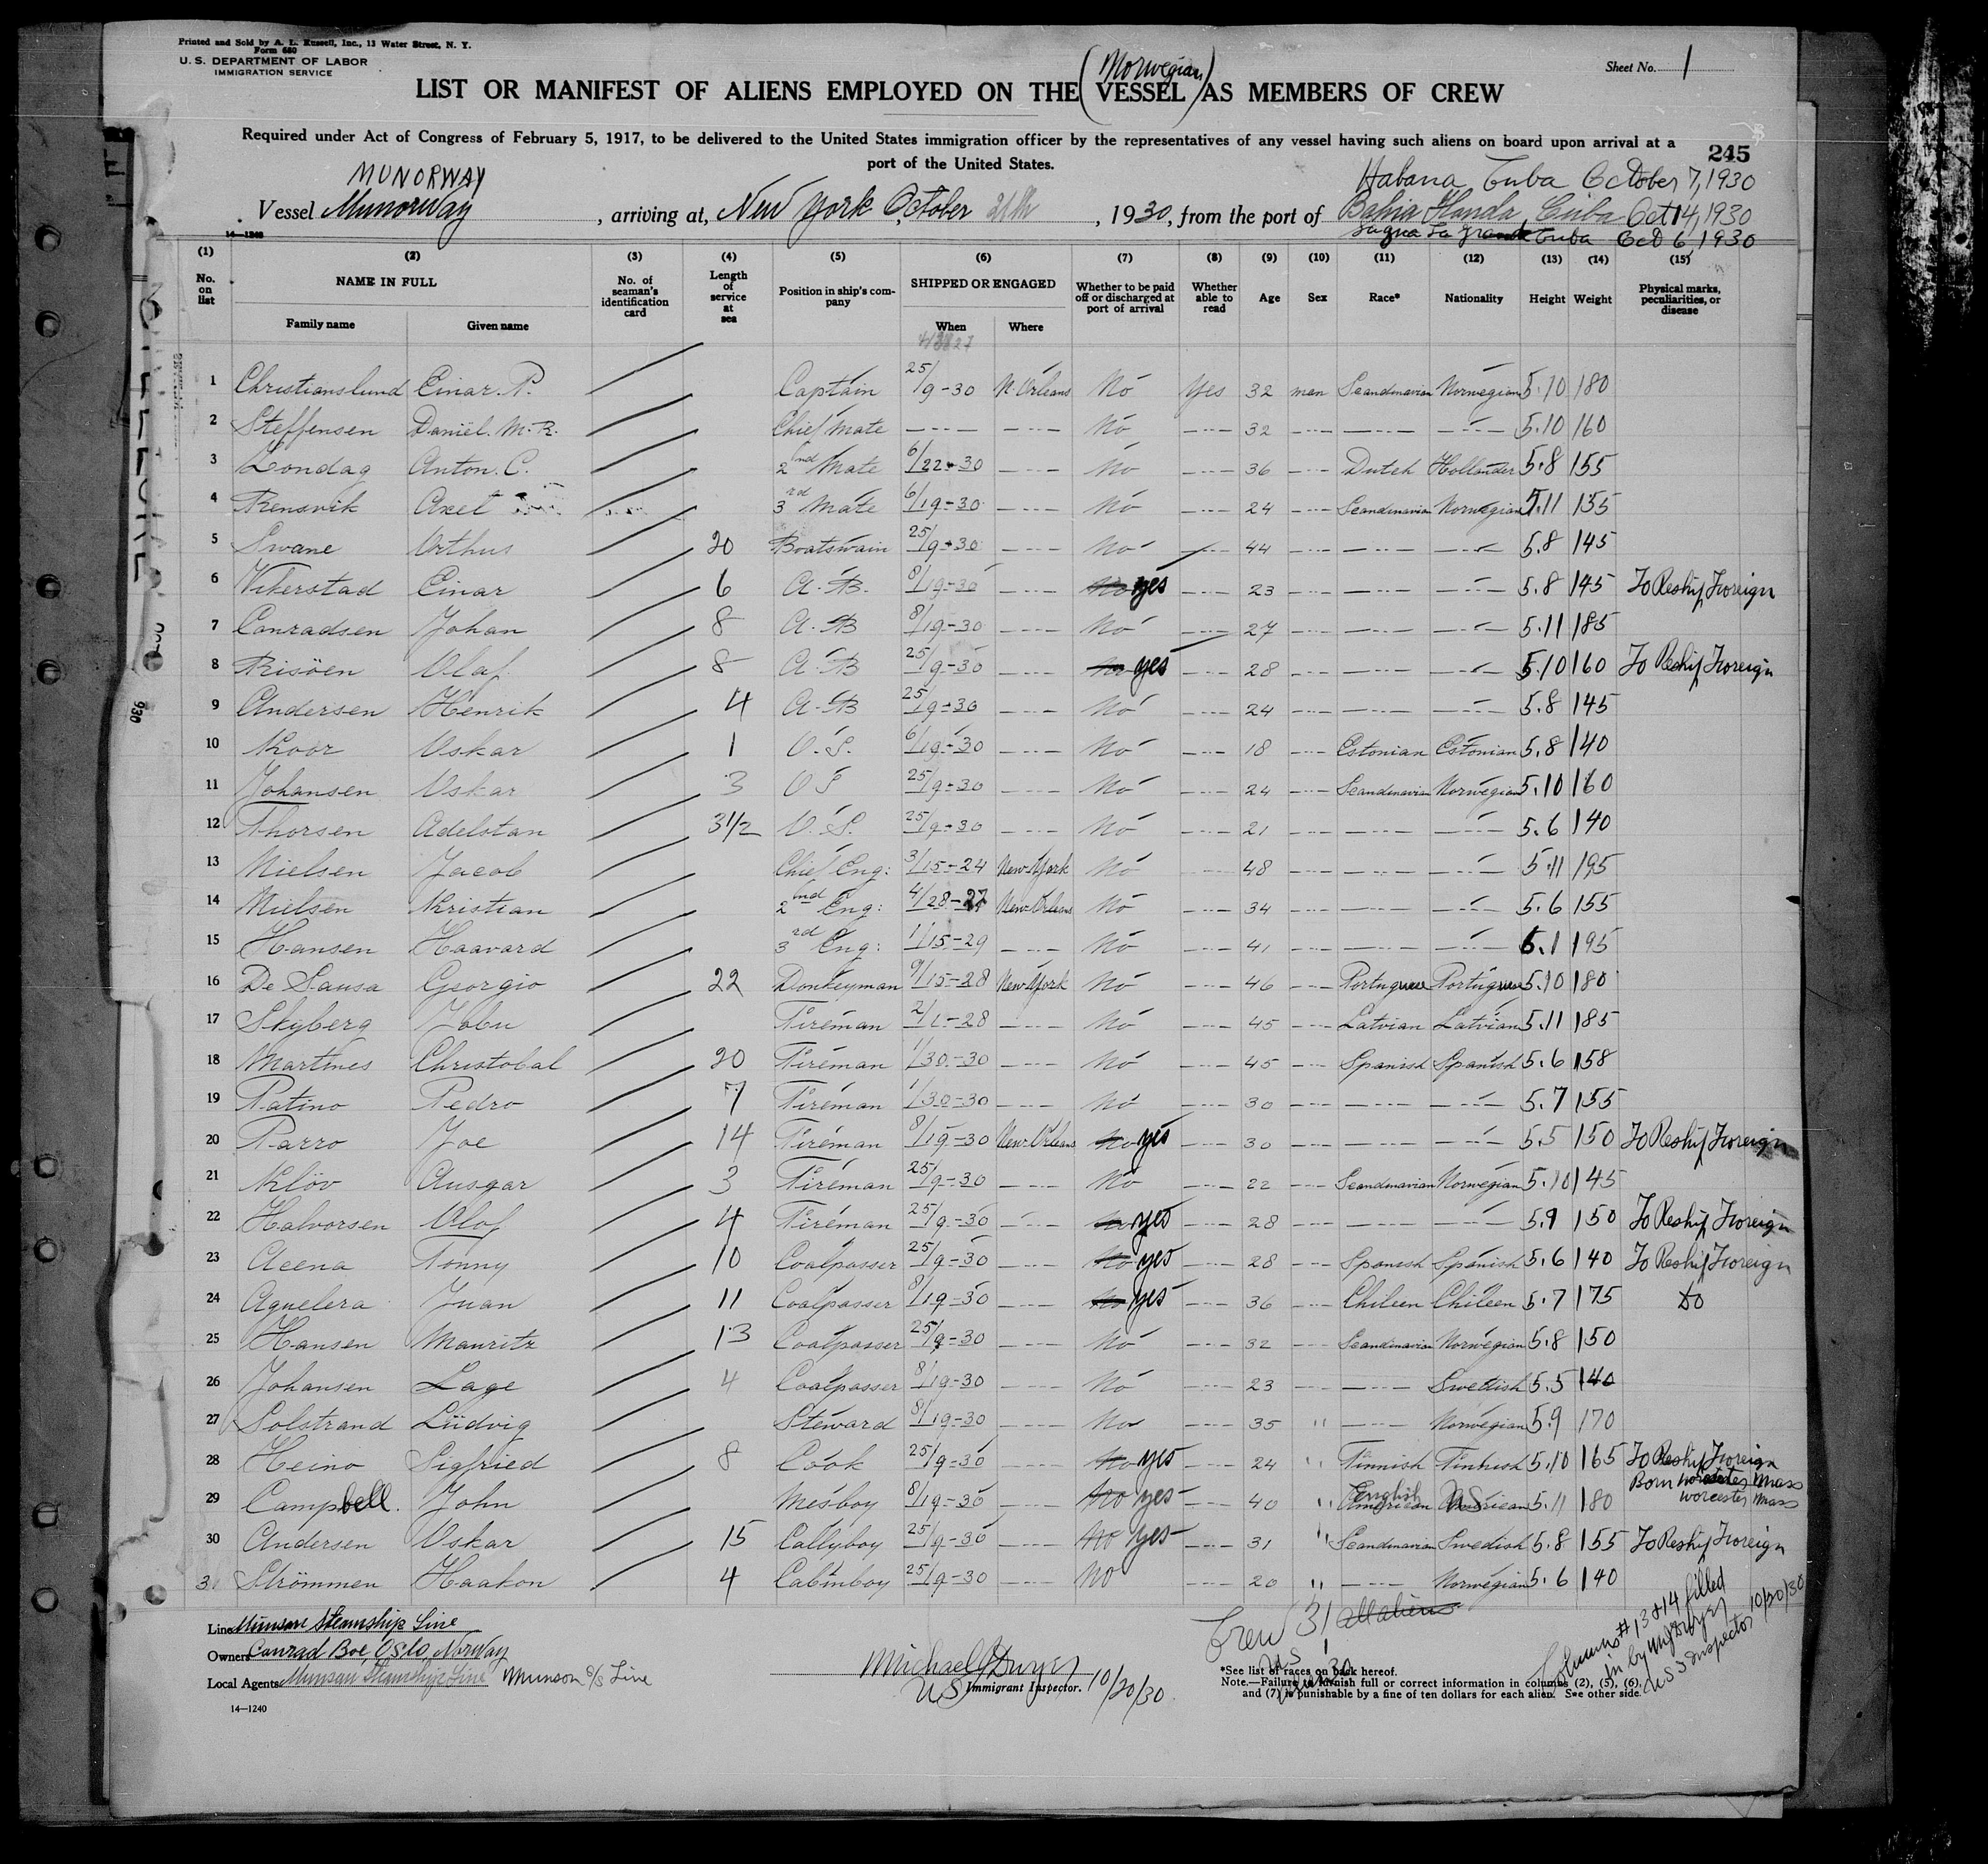 Printed and Sold by A. L. Russell, Inc., 13 Water Street, N. Y.
Form 680
U. S. DEPARTMENT OF LABOR
IMMIGRATION SERVICE
Sheet No. 1
(Norwegian)
LIST OR MANIFEST OF ALIENS EMPLOYED ON THE VESSEL AS MEMBERS OF CREW
Required under Act of Congress of February 5, 1917, to be delivered to the United States immigration officer by the representatives of any vessel having such aliens on board upon arrival at a
port of the United States.
245
MUNORWAY
Habana Cuba October 7, 1930
Vessel Munorway, arriving at, New York October, 1930, from the port of Bahia Honda, Cuba Oct 14, 1930
Sagua La Grande Cuba Oct 6, 1930
14-1240
(1) (2) (3) (4) (5) (6) (7) (8) (9) (10) (11) (12) (13) (14) (15)
No. on list NAME IN FULL No. of seaman's identification card Length of service at sea Position in ship's company SHIPPED OR ENGAGED Whether to be paid off or discharged at port of arrival Whether able to read Age Sex Race* Nationality Height Weight Physical marks, peculiarities, or disease
Family name Given name When Where
1 Christianslund Einar. P. Captain 25/9-30 N. Orleans No Yes 32 man Scandinavian Norwegian 5.10 180
2 Steffensen Daniel. M. R. Chief Mate No 32 5.10 160
3 Zondag Anton. C. 2nd Mate 6/22-30 No 36 Dutch Hollander 5.8 155
4 Rensvik Axel 3rd Mate 6/19-30 No 24 Scandinavian Norwegian 5.11 155
5 Swane Arthus 20 Boatswain 25/9-30 No 44 5.8 145
6 Vikerstad Einar 6 A. B. 8/19-30 No yes 23 5.8 145 To Reship Foreign
7 Conradsen Johan 8 A. B 8/19-30 No 27 5.11 185
8 Risöen Olaf 8 A. B 25/9-30 No yes 28 5.10 160 To Reship Foreign
9 Andersen Henrik 4 A. B 25/9-30 No 24 5.8 145
10 Koor Oskar 1 O. S. 6/19-30 No 18 Estonian Estonian 5.8 140
11 Johansen Oskar 3 O S 25/9-30 No 24 Scandinavian Norwegian 5.10 160
12 Thorsen Adelstan 3 1/2 O. S. 25/9-30 No 21 5.6 140
13 Nielsen Jacob Chief Eng: 3/15-24 New York No 48 5.11 195
14 Nielsen Kristian 2nd Eng: 4/28-27 New Orleans No 34 5.6 155
15 Hansen Haavard 3rd Eng: 1/15-29 No 41 6.1 195
16 De Sausa Georgio 22 Donkeyman 9/15-28 New York No 46 Portuguese Portuguese 5.10 180
17 Skyberg John Fireman 2/1-28 No 45 Latvian Latvian 5.11 185
18 Martines Christobal 20 Fireman 1/30-30 No 45 Spanish Spanish 5.6 158
19 Patino Pedro 7 Fireman 1/30-30 No 30 5.7 155
20 Parro Joe 14 Fireman 8/19-30 New Orleans No yes 30 5.5 150 To Reship Foreign
21 Klöv Ausgar 3 Fireman 25/9-30 No 22 Scandinavian Norwegian 5.10 145
22 Halvorsen Olof 4 Fireman 25/9-30 No yes 28 5.9 150 To Reship Foreign
23 Acena Tonny 10 Coalpasser 25/9-30 No yes 28 Spanish Spanish 5.6 140 To Reship Foreign
24 Aguelera Juan 11 Coalpasser 8/19-30 No yes 36 Chileen Chileen 5.7 175 do
25 Hansen Mauritz 13 Coalpasser 25/9-30 No 32 Scandinavian Norwegian 5.8 150
26 Johansen Lage 4 Coalpasser 8/19-30 No 23 Swedish 5.5 140
27 Solstrand Lüdvig Steward 8/19-30 No 35 " Norwegian 5.9 170
28 Heino Sigfried 8 Cook 25/9-30 No yes 24 " Finnish Finnish 5.10 165 To Reship Foreign
Born Worcester Mass
29 Campbell. John Mesboy 8/19-30 No yes 40 " English American US American 5.11 180 Worcester Mass
30 Andersen Oskar 15 Gallyboy 25/9-30 No yes 31 " Scandinavian Swedish 5.8 155 To Reship Foreign
31 Strömmen Haakon 4 Cabinboy 25/9-30 No 20 " Norwegian 5.6 140
Crew 31 all aliens
US 1
Aliens 30
Columns # 13 & 14 filled
in by M J Dwyer
US Inspector 10/20/30
Line Munson Steamship Line
Owners Conrad Boe, Oslo, Norway
Local Agents Munson Steamship Line Munson S/S Line
Michael J Dwyer
US Immigrant Inspector. 10/20/30
*See list of races on back hereof.
Note.—Failure to furnish full or correct information in columns (2), (5), (6),
and (7) is punishable by a fine of ten dollars for each alien. See other side.
14-1240